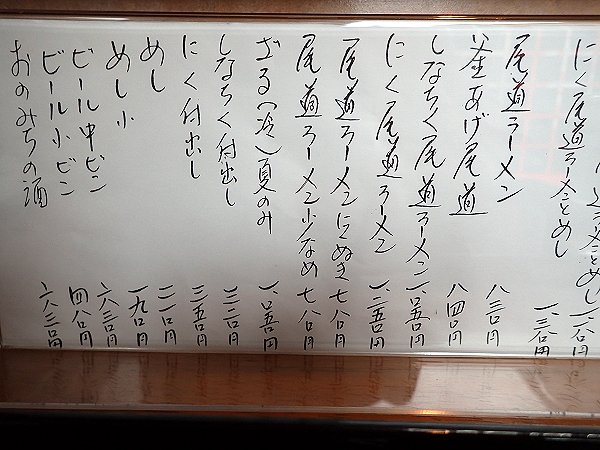 にく尾道ラーメンとめし
尾道ラーメン 八三〇円
釜あげ尾道 八四〇円
しなちく尾道ラーメン 一、〇五〇円
にく尾道ラーメン 一、二五〇円
尾道ラーメンにくぬき 七八〇円
尾道ラーメン少なめ 七八〇円
ざる(冷)夏のみ 一、〇五〇円
しなちく付出し 三二〇円
にく付出し 三五〇円
めし 二一〇円
めし小 一九〇円
ビール中ビン 六三〇円
ビール小ビン
おのみちの酒 六三〇円